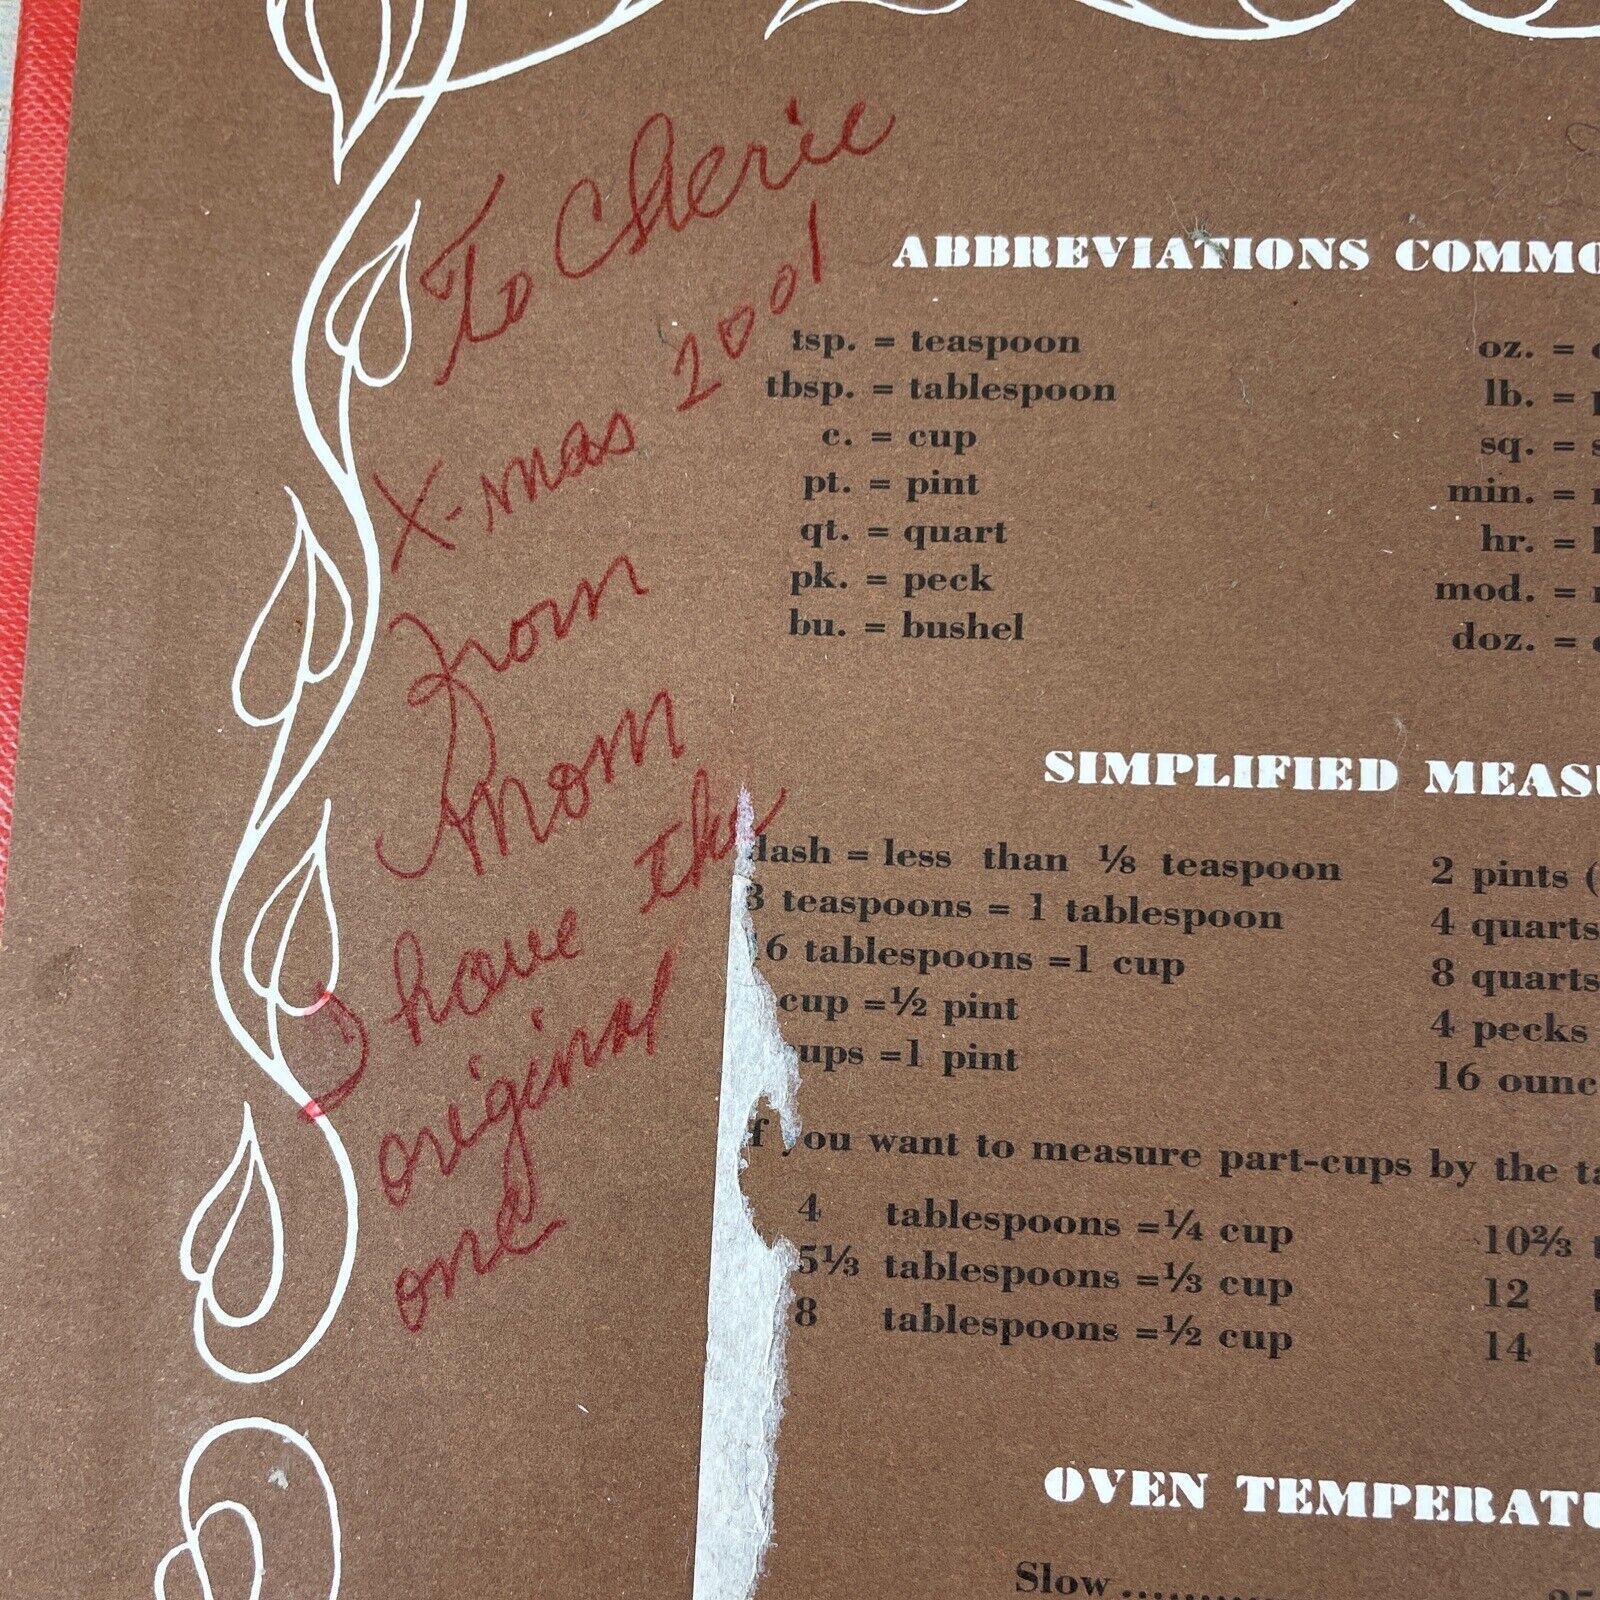 To Cherie
X-mas 2001
From
Mom
I have the
original
one
ABBREVIATIONS
tsp. = teaspoon
tbsp. = tablespoon
c. = cup
pt. = pint
qt. = quart
pk. = peck
bu. = bushel
oz. =
lb. =
sq. =
min. =
hr. =
mod. =
doz. =
SIMPLIFIED
dash = less than ⅛ teaspoon
3 teaspoons = 1 tablespoon
16 tablespoons =1 cup
cup =½ pint
ups =1 pint
2 pints (
4 quarts
8 quarts
4 pecks
16
If you want to measure part-cups by the
4 tablespoons =¼ cup
5⅓ tablespoons =⅓ cup
8 tablespoons =½ cup
10⅔
12
14
OVEN
Slow